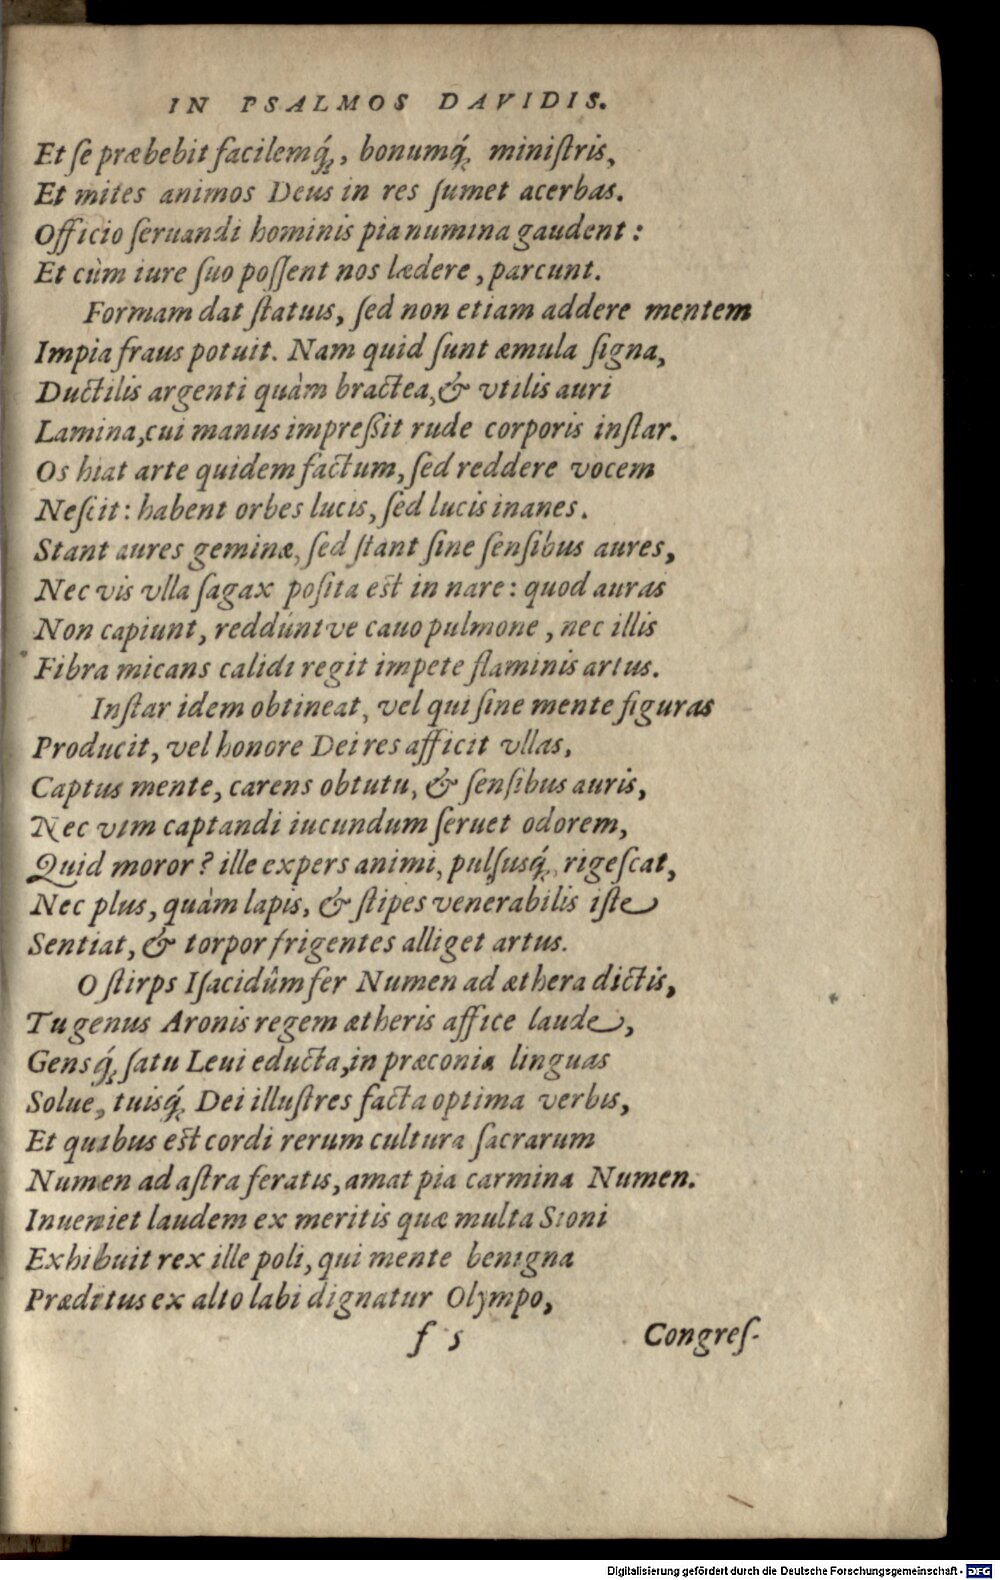 IN PSALMOS DAVIDIS.
Et ſe præbebit facilemq́;, bonumq́; miniſtris,
Et mites animos Deus in res ſumet acerbas.
Officio ſeruandi hominis pia numina gaudent:
Et cùm iure ſuo poſſent nos lædere, parcunt.
Formam dat ſtatuis, ſed non etiam addere mentem
Impia fraus potuit. Nam quid ſunt æmula ſigna,
Ductilis argenti quàm bractea, & vtilis auri
Lamina, cui manus impreſſit rude corporis inſtar.
Os hiat arte quidem factum, ſed reddere vocem
Neſcit: habent orbes lucis, ſed lucis inanes.
Stant aures geminæ, ſed ſtant ſine ſenſibus aures,
Nec vis vlla ſagax poſita eſt in nare: quod auras
Non capiunt, reddúntve cauo pulmone, nec illis
Fibra micans calidi regit impete flaminis artus.
Inſtar idem obtineat, vel qui ſine mente figuras
Producit, vel honore Dei res afficit vllas,
Captus mente, carens obtutu, & ſenſibus auris,
Nec vim captandi iucundum ſeruet odorem,
Quid moror? ille expers animi, pulſusq́; rigeſcat,
Nec plus, quàm lapis, & ſtipes venerabilis iſte
Sentiat, & torpor frigentes alliget artus.
O ſtirps Iſacidûm fer Numen ad æthera dictis,
Tu genus Aronis regem ætheris affice laude,
Gensq́; ſatu Leui educta, in præconia linguas
Solue, tuisq́; Dei illuſtres facta optima verbis,
Et quibus eſt cordi rerum cultura ſacrarum
Numen ad aſtra feratis, amat pia carmina Numen.
Inueniet laudem ex meritis quæ multa Sioni
Exhibuit rex ille poli, qui mente benigna
Præditus ex alto labi dignatur Olympo,
f 5 Congreſ-
Digitalisierung gefördert durch die Deutsche Forschungsgemeinschaft - DFG